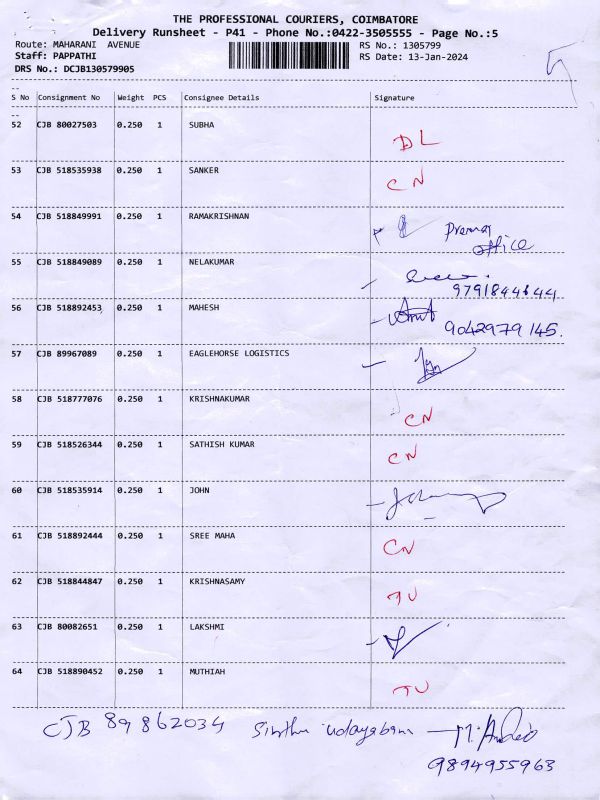 THE PROFESSIONAL COURIERS, COIMBATORE
Delivery Runsheet - P41 - Phone No.:0422-3505555 - Page No.:5
Route: MAHARANI AVENUE RS No.: 1305799
Staff: PAPPATHI RS Date: 13-Jan-2024
DRS No.: DCJB130579905
S No Consignment No Weight PCS Consignee Details Signature
52 CJB 80027503 0.250 1 SUBHA DL
53 CJB 518535938 0.250 1 SANKER CN
54 CJB 518849991 0.250 1 RAMAKRISHNAN
office
55 CJB 518849089 0.250 1 NELAKUMAR
9791844644
56 CJB 518892453 0.250 1 MAHESH
9042979145.
57 CJB 89967089 0.250 1 EAGLEHORSE LOGISTICS
58 CJB 518777076 0.250 1 KRISHNAKUMAR CN
59 CJB 518526344 0.250 1 SATHISH KUMAR CN
60 CJB 518535914 0.250 1 JOHN
61 CJB 518892444 0.250 1 SREE MAHA CN
62 CJB 518844847 0.250 1 KRISHNASAMY TU
63 CJB 80082651 0.250 1 LAKSHMI
64 CJB 518890452 0.250 1 MUTHIAH TU
CJB 89862034
9894955963